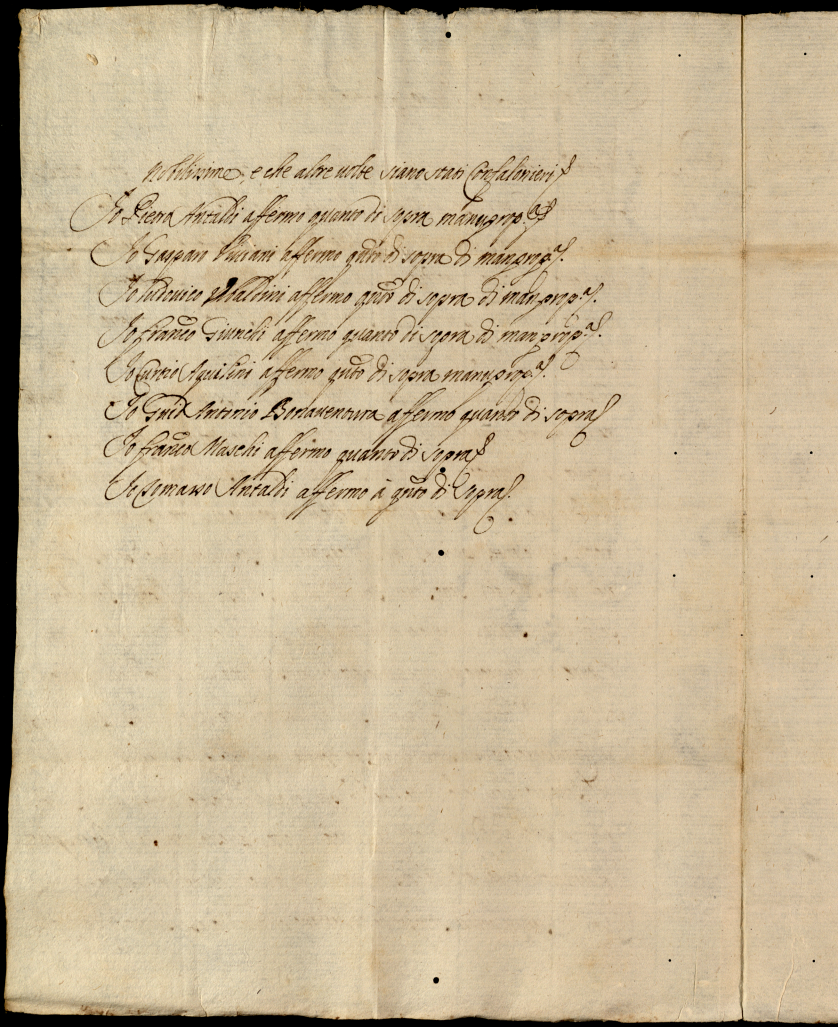 nobilissime, e che altre uolte siano stati Confalonieri
Io Piero Antaldi affermo quanto di sopra manu prop.a
Io Gasparo Viviani affermo qnto di sopra di man prop.a
Io Ludovico affermo qnto di sopra di man prop.a
Io Franco Giunchi affermo quanto di sopra di man prop.a
Io Curtio Aquilini affermo qnto di sopra manu prop.a
Io Guid Antonio Bonaventura affermo quanto di sopra
Io Franco Maschi affermo quanto di sopra
Io Tomasso Antaldi affermo à qnto di sopra